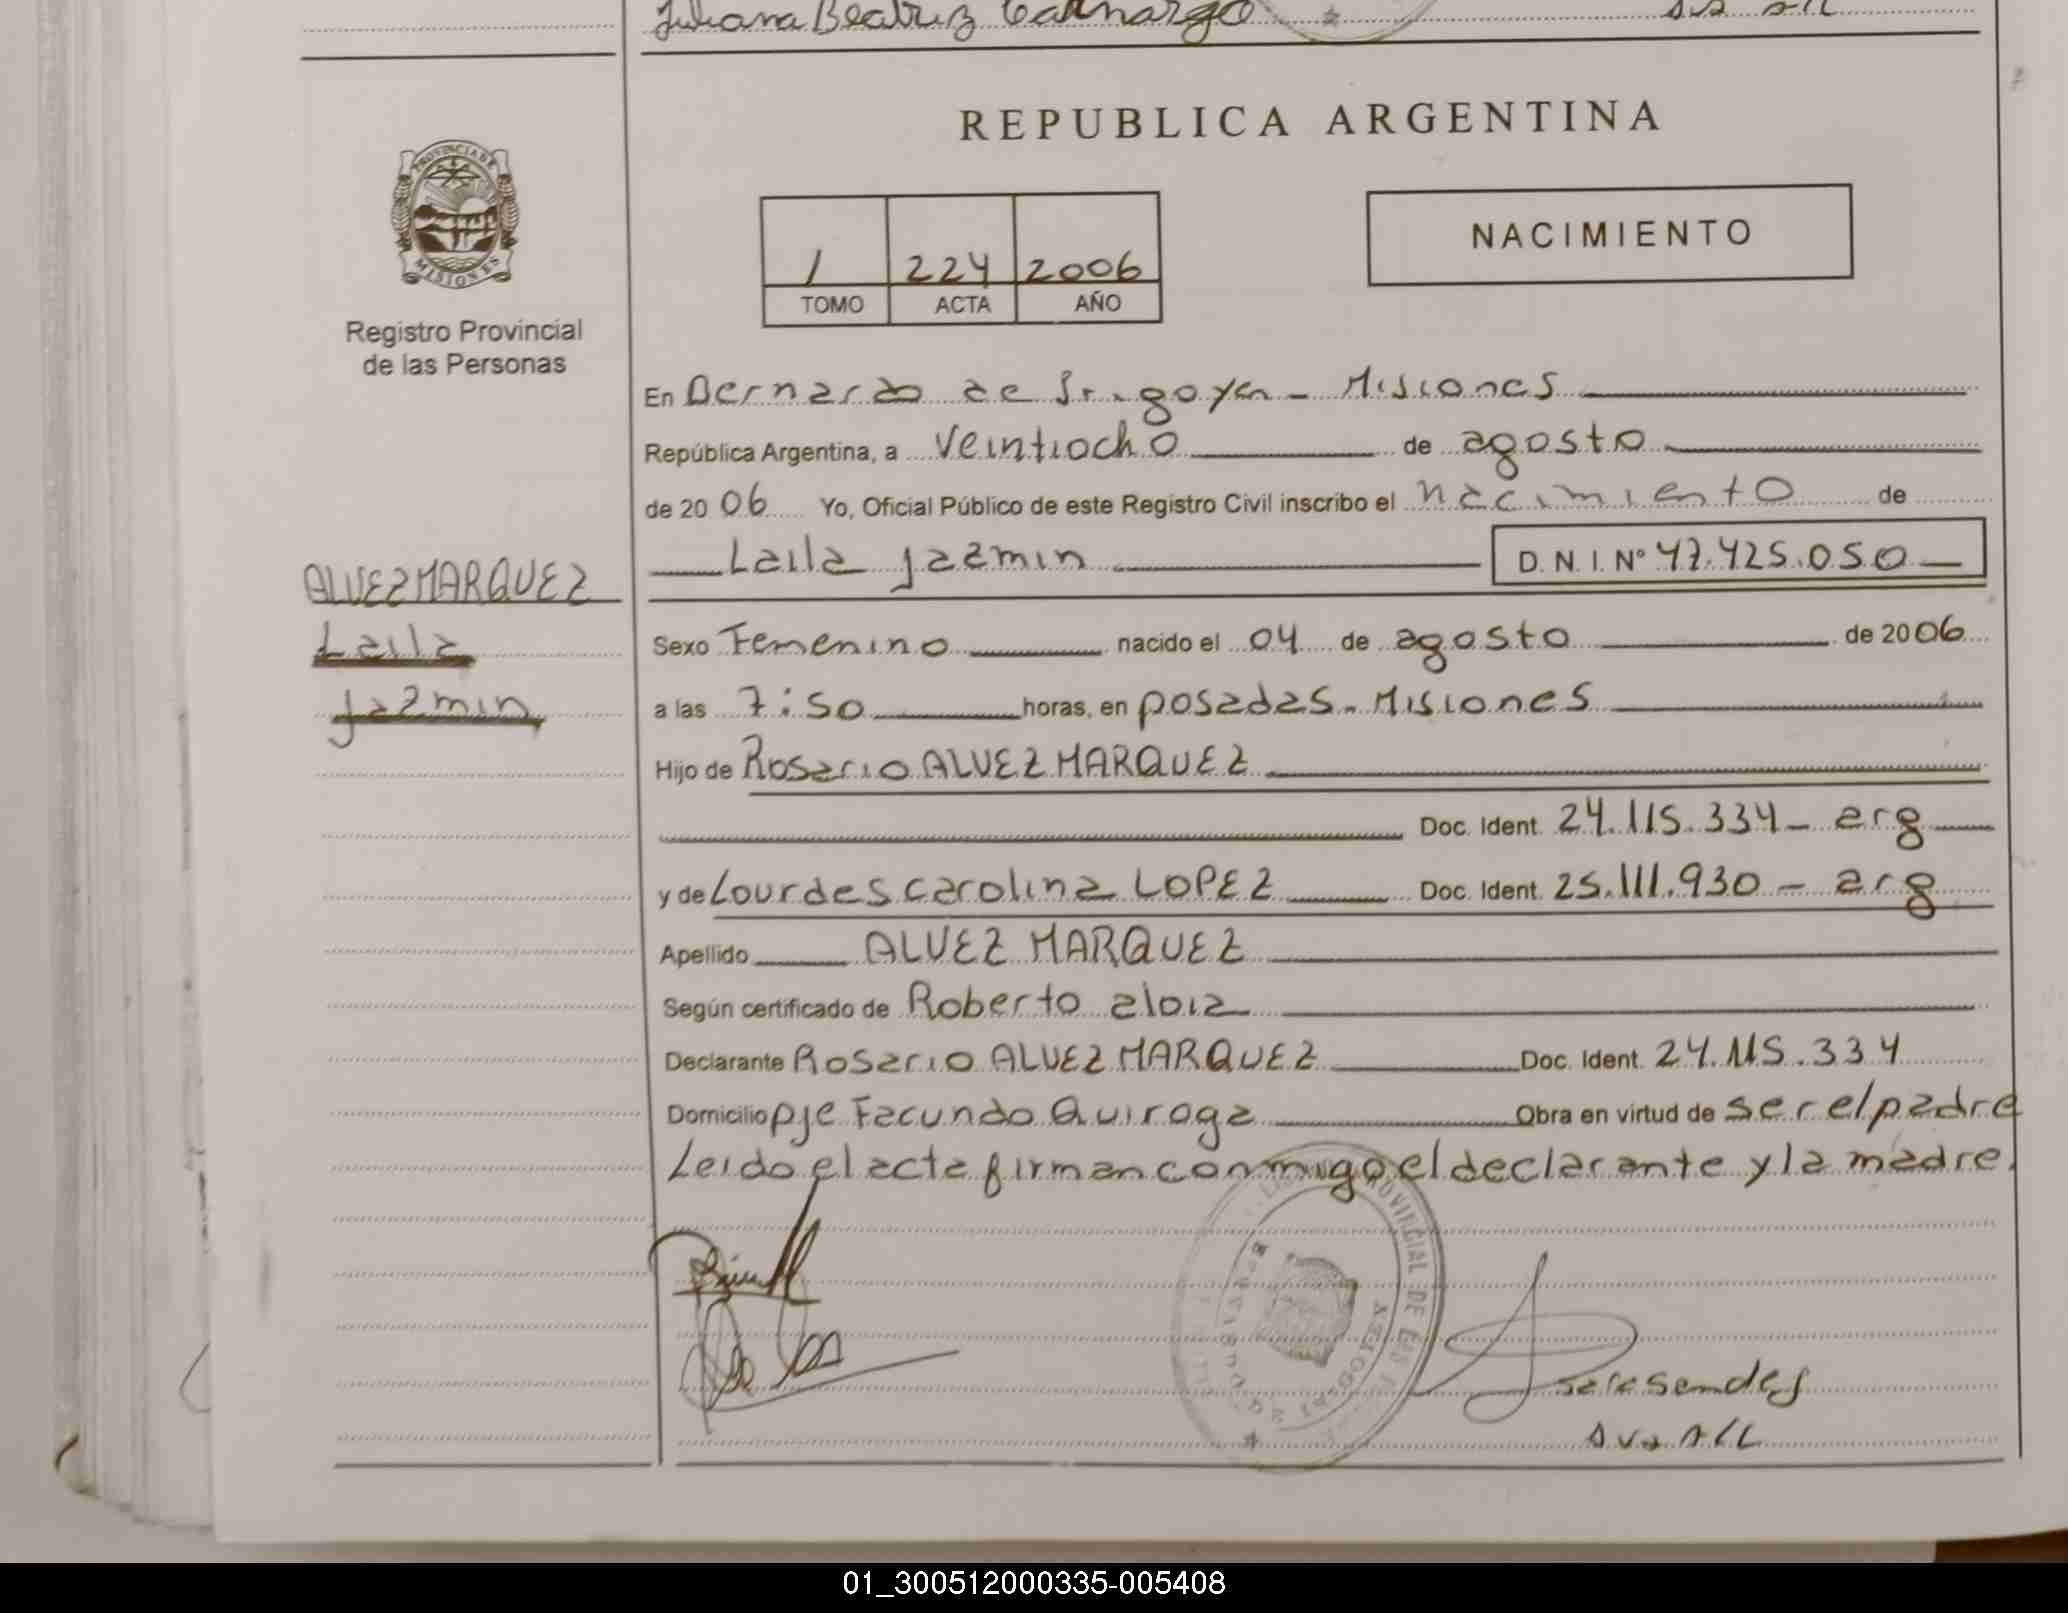 Juliana Beatriz Camargo
REPUBLICA ARGENTINA
PROVINCIA DE
MISIONES
Registro Provincial
de las Personas
NACIMIENTO
1 224 2006
TOMO ACTA AÑO
En Bernardo de Irigoyen - Misiones
República Argentina, a Veintiocho de agosto
de 2006 Yo, Oficial Público de este Registro Civil inscribo el nacimiento de
Laila Jazmin D. N. I. Nº 47.425.050
ALVEZ MARQUEZ
Laila
Jazmin
Sexo Femenino nacido el 04 de agosto de 2006
a las 7:50 horas, en posadas - Misiones
Hijo de Rosario ALVEZ MARQUEZ
Doc. Ident. 24.115.334 - arg
y de Lourdes carolina LOPEZ Doc. Ident. 25.111.930 - arg
Apellido ALVEZ MARQUEZ
Según certificado de Roberto aloiz
Declarante Rosario ALVEZ MARQUEZ Doc. Ident. 24.115.334
Domicilio pje Facundo Quiroga Obra en virtud de ser el padre
Leido el acta firman conmigo el declarante y la madre.
01_300512000335-005408